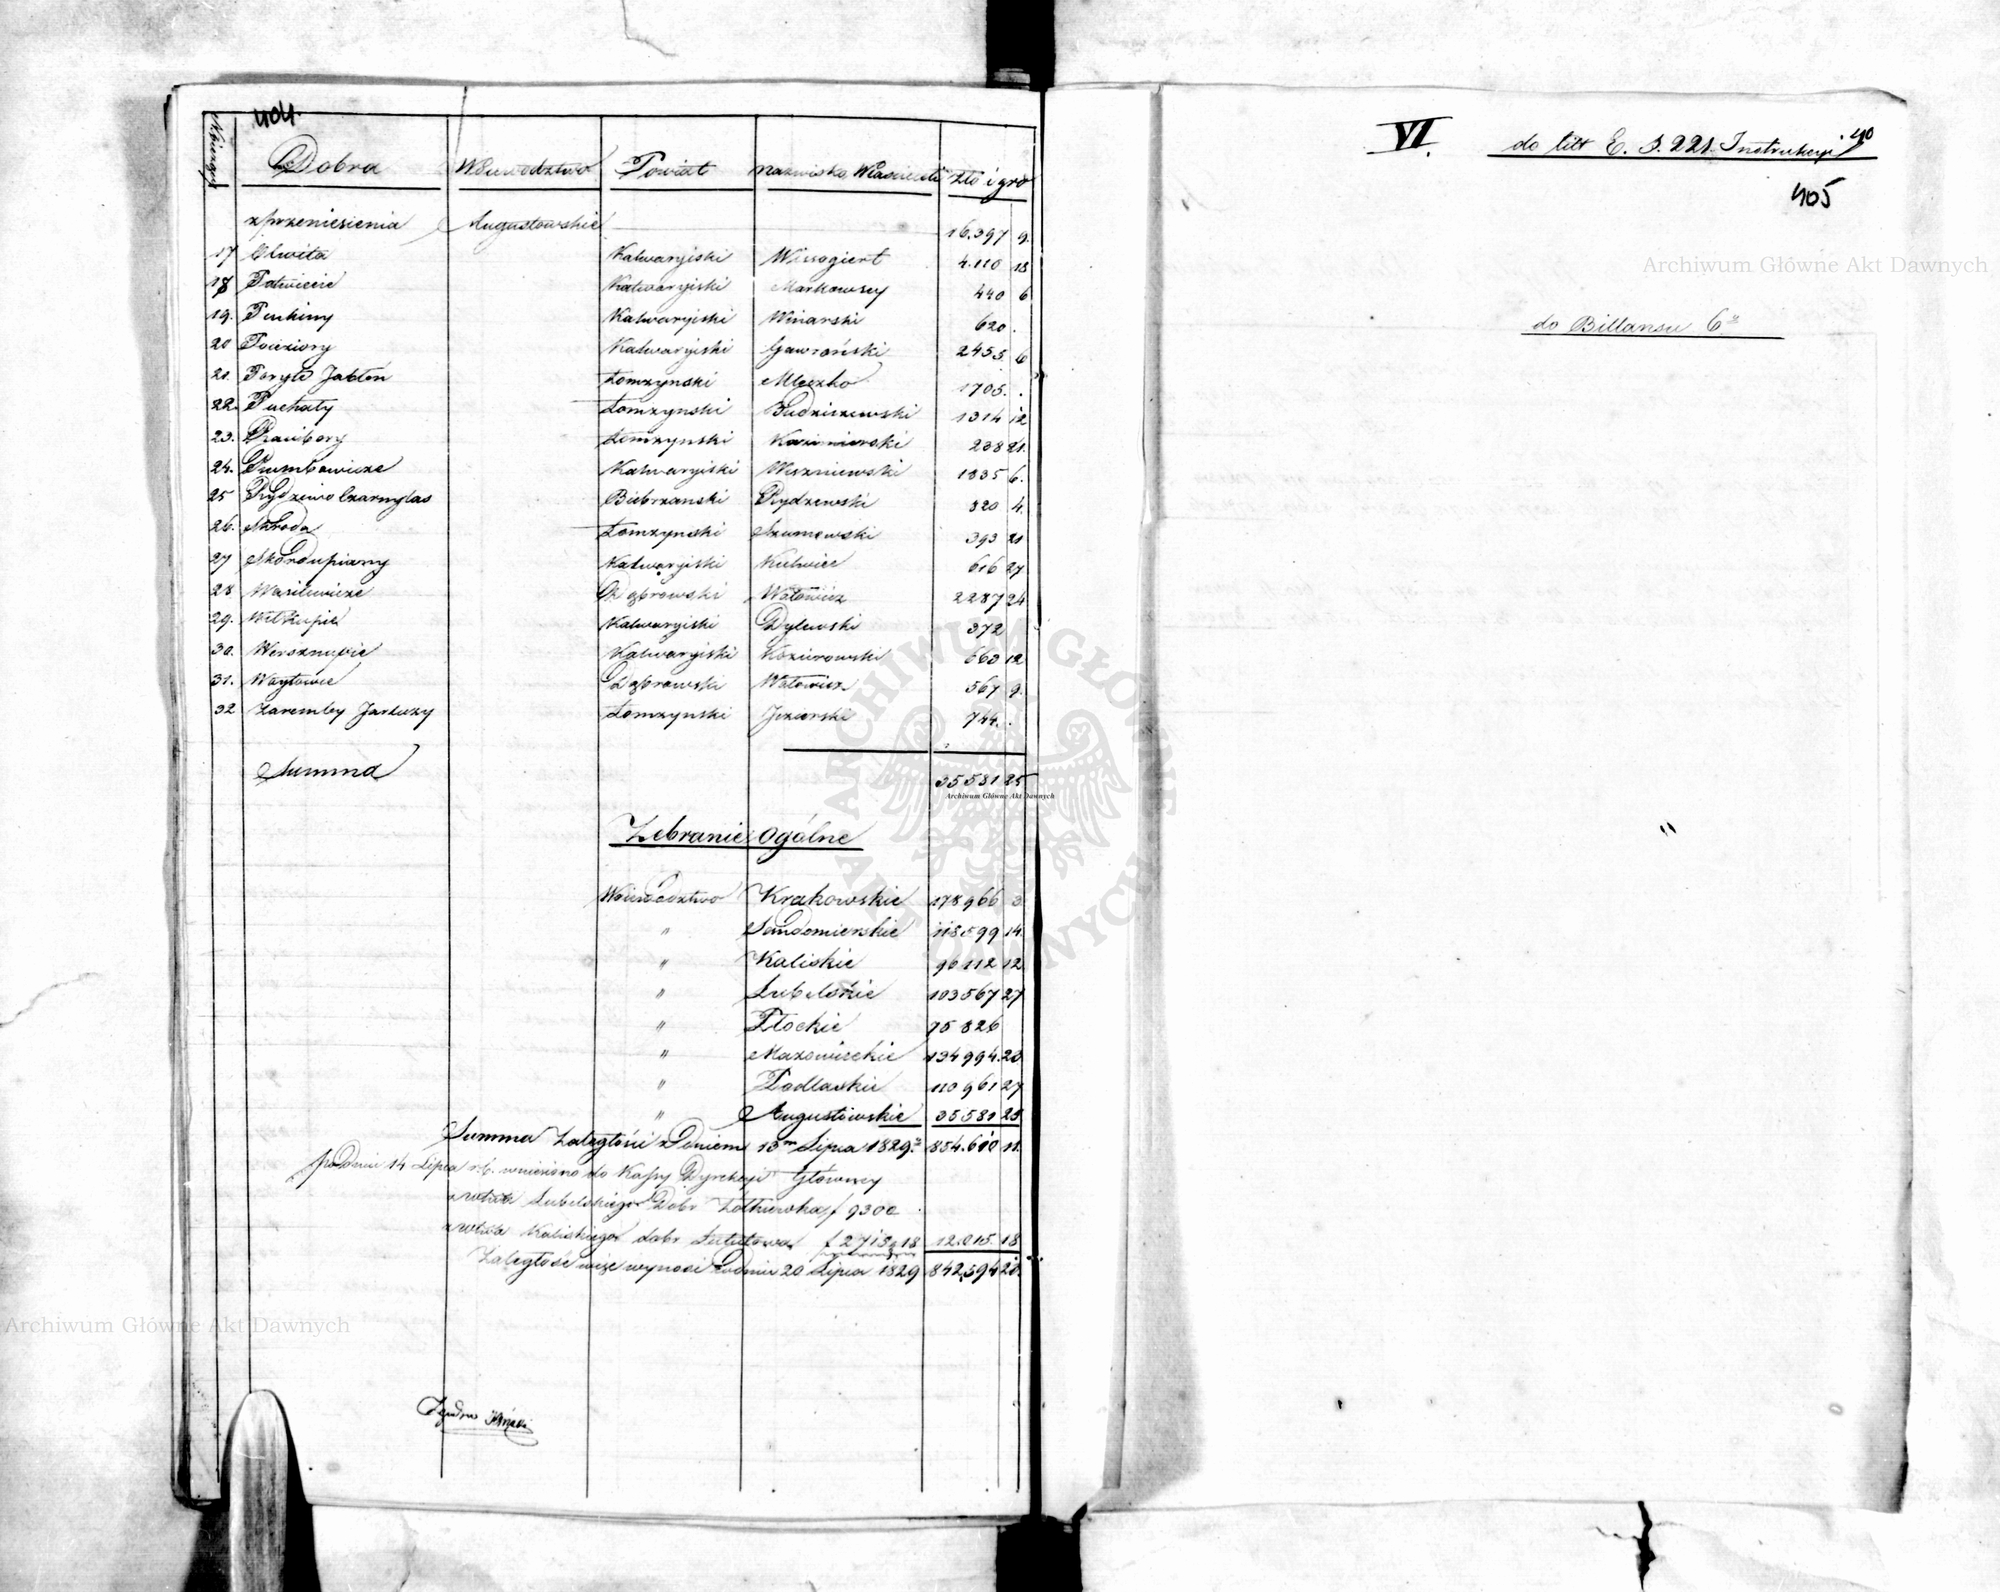 404.
Dobra Województwo Powiat Nazwisko Właściciela Złe i gro
z przeniesienia Augustowskie 16.397 9.
17 Olwita Kalwaryiski Wissogiert 4.110 18
18 Kalwaryiski Markowscy 440 6
19. Kalwaryiski Winarski 620 .
20 Kalwaryiski Gawroński 2455. 6
21. Poryte Jabłoń Łomżynski Mleczko 1705. .
22. Puchały Łomżynski Budziszewski 1314 12
23. Łomżynski Kazimierski 238 21.
24. Rumbowicze Kalwaryiski Wiszniewski 1835 6.
25 Rydzewo Czarnylas Biebrzanski Rydzewski 320 4.
26. Skroda Łomżynski Szumowski 393 21
27 Skordupiany Kalwaryiski 616 27
28 Wasilewicze Dąbrowski Wołowicz 2287 24
29. Wilkupie Kalwaryiski Dylewski 372
30. Wersznupie Kalwaryiski Kozierowski 663 12
31. Woytowce Dąbrowski Wołowicz 567 9.
32 Zaremby Jartuzy Łomżynski Jezierski 744. .
Summa 35581 25
Archiwum Główne Akt Dawnych
Zebranie ogólne
Województwo Krakowskie 178966 3
" Sandomierskie 118599 14.
" Kaliskie 96112 12
" Lubelskie 103567 27
" Płockie 75826
" Mazowieckie 134994. 23
" Podlaskie 110961 27
" Augustowskie 35581 25
Summa Zaległości z Dniem 13m Lipca 1829. 854.610 11.
po Dniu 14 Lipca r.b. wniesiono do Kassy Dyrekcyi Główney
z wdztwa Lubelskiego Dobr Żółkiewka f 9300
z wdztwa Kaliskiego dobr Lututowa f 2715 g 18 12.015. 18
Zaległość więc wynosi z dniem 20 Lipca 1829 842,594 23.
Archiwum Główne Akt Dawnych
VI.
do litt E. §. 221. Instrukcyi 40
405
Archiwum Główne Akt Dawnych
do Billansu 6o
ARCHIWUM GŁÓWNE AKT DAWNYCH